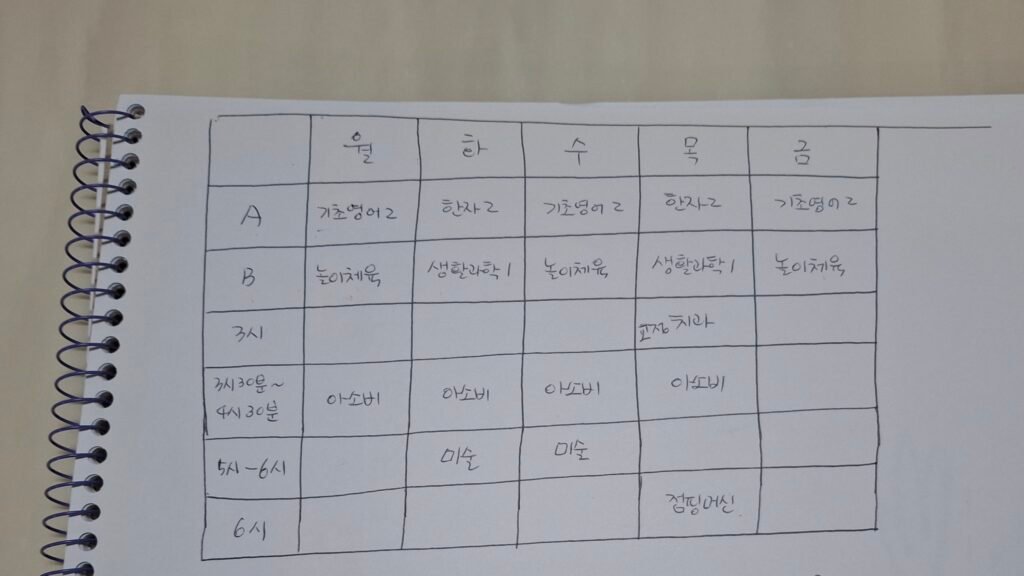 월 화 수 목 금
A 기초영어2 한자2 기초영어2 한자2 기초영어2
B 놀이체육 생활과학1 놀이체육 생활과학1 놀이체육
3시 교정치과
3시30분~
4시30분 아소비 아소비 아소비 아소비
5시-6시 미술 미술
6시 점핑머신.